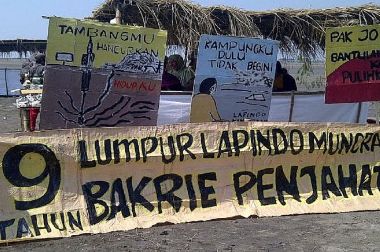 TAMBANGMU
HANCURKAN
HIDUPKU
KAMPUNGKU
DULU
TIDAK BEGINI
LAPINDO
PAK JO
PULIHK
9
TAHUN
LUMPUR LAPINDO MUNCRA
BAKRIE PENJAHAT